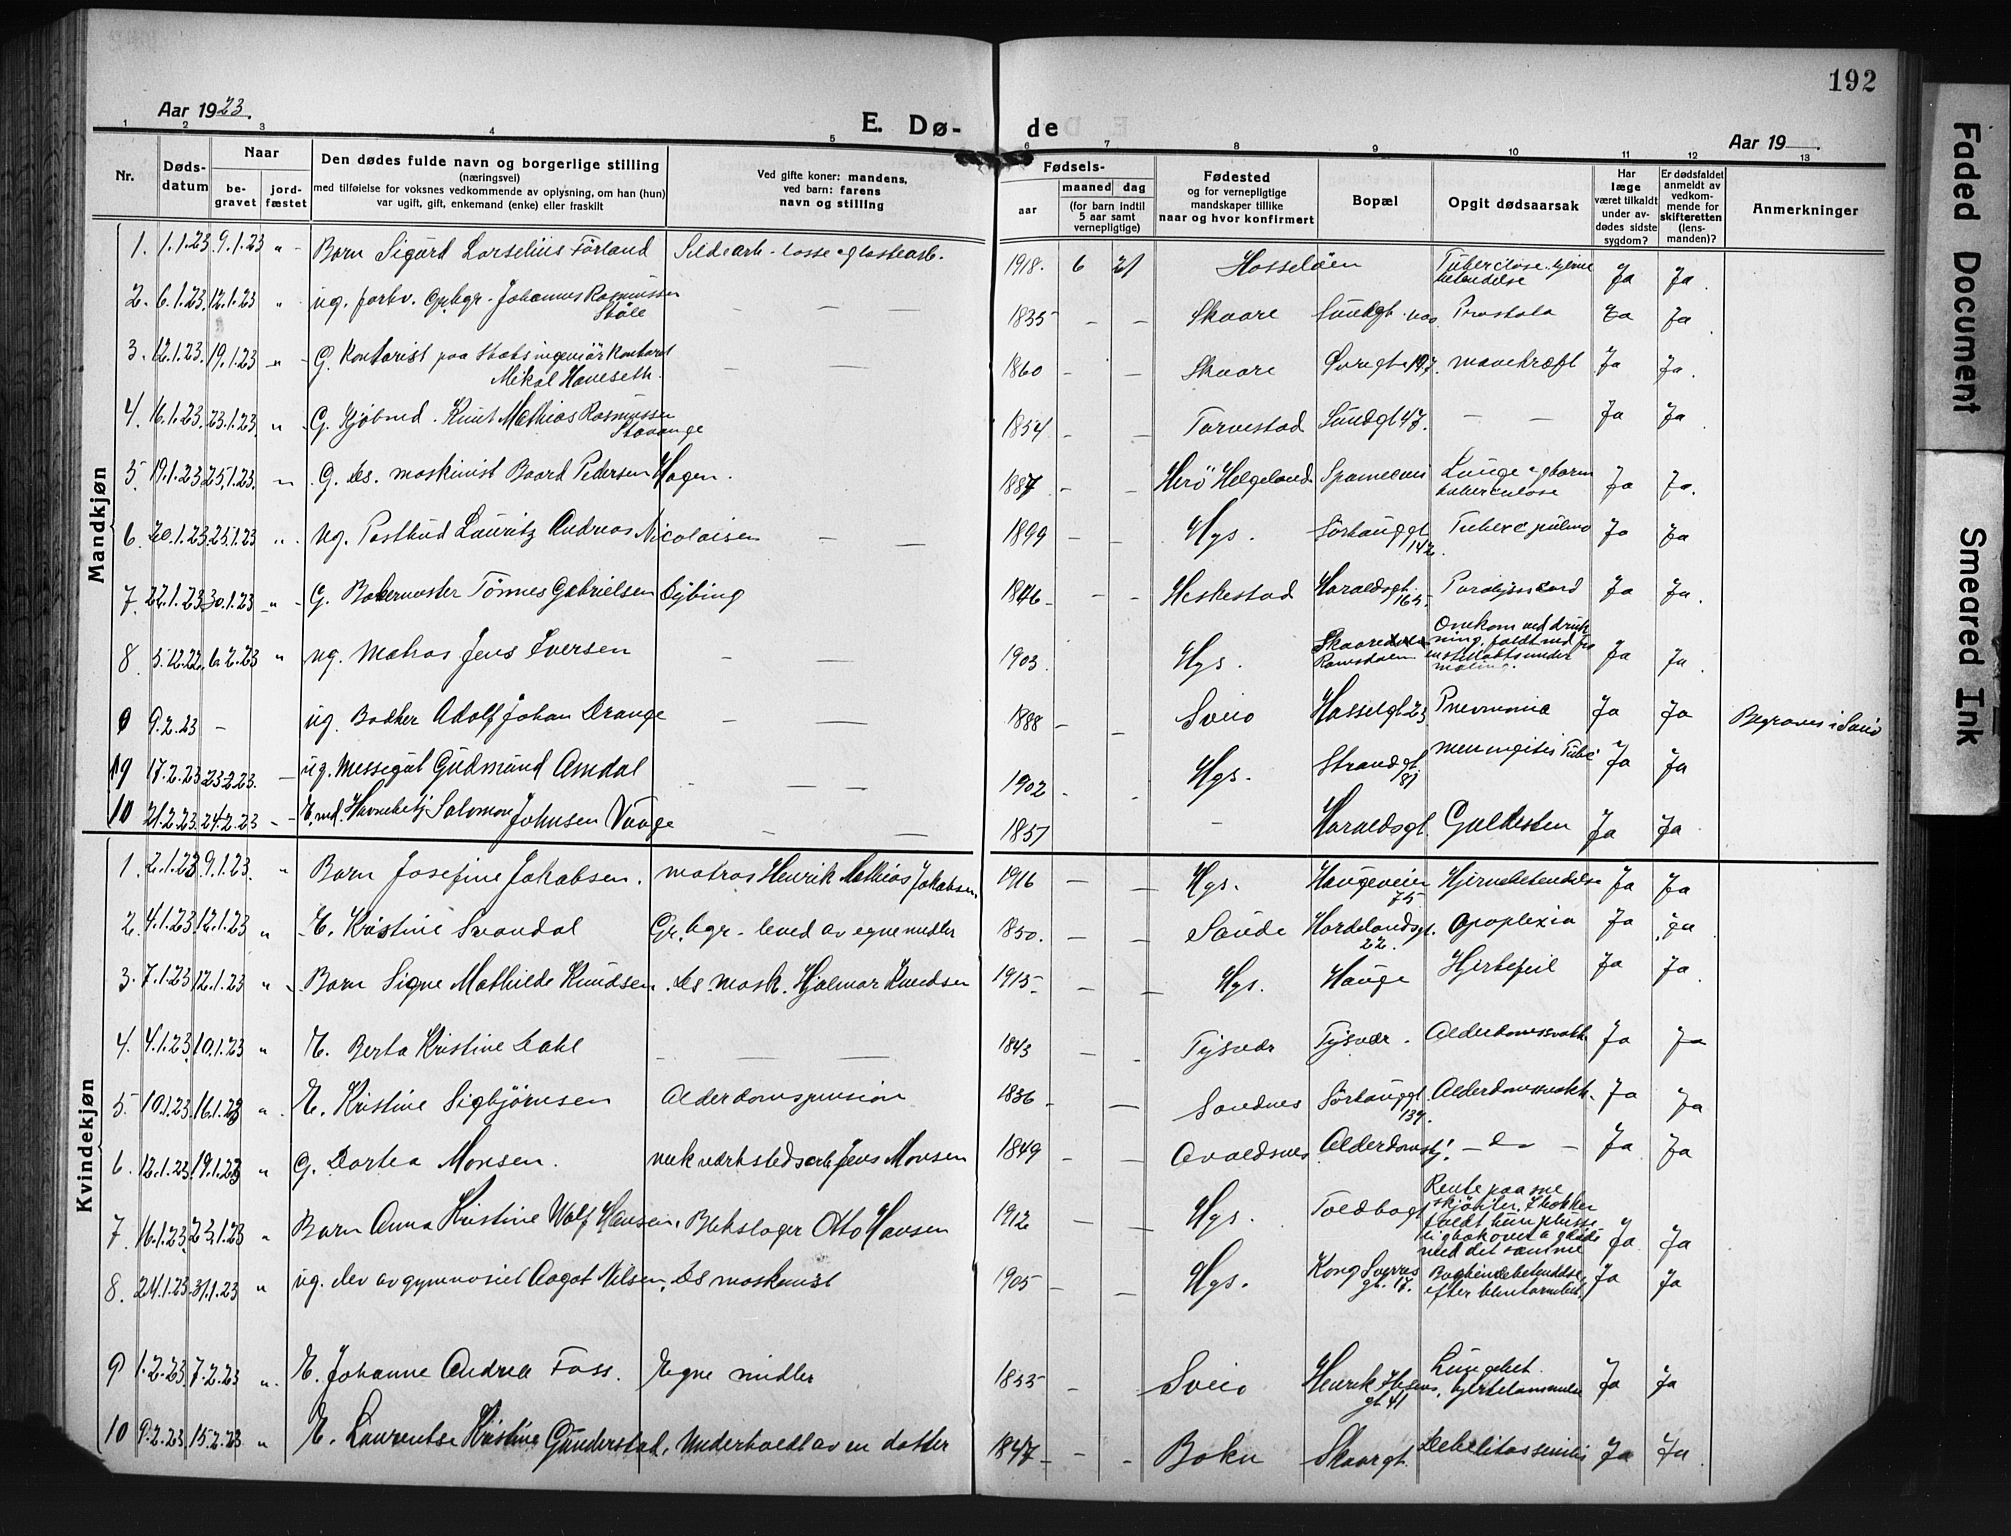 192
Aar 1923.
E. Dø-
de
Aar 19
1 2 3 4 5 6 7 8 9 10 11 12 13
Nr.
Døds-
datum
Naar
be-
gravet
jord-
fæstet
Den dødes fulde navn og borgerlige stilling
(næringsvei)
med tilføielse for voksnes vedkommende av oplysning, om han (hun)
var ugift, gift, enkemand (enke) eller fraskilt
Ved gifte koner: mandens,
ved barn: farens
navn og stilling
Fødsels-
aar
maaned
dag
(for barn indtil
5 aar samt
vernepligtige)
Fødested
og for vernepligtige
mandskaper tillike
naar og hvor konfirmert
Bopæl
Opgit dødsaarsak
Har
læge
været tilkaldt
under av-
dødes sidste
sygdom?
Er dødsfaldet
anmeldt av
vedkom-
mende for
skifteretten
(lens-
manden)?
Anmerkninger
Mandkjøn
1. 1.1.23 9.1.23 " Barn Sigurd Førland 1918. 6 21 Ja Ja
2. 6.1.23 12.1.23 " ug. forhv. Johannes Rasmussen
Støle — — 1835 — — Skaare Sundgt. Prostata Ja Ja
3. 12.1.23. 19.1.23 " G. Kontorist paa Statsingeniörkontoret
Mikal Haveseth. — — 1860 — — Skaare mavekræft Ja Ja
4. 16.1.23. 23.1.23. " G. Kjøbmd. Knut Mathias Rasmussen
Stavange 1854 — — Torvestad Sundgt 47. — — Ja Ja
5. 19.1.23 25.1.23. " G. Ds. maskinist Baard Pedersen Hagen. 1887 — — Herö Helgeland Lunge og barm
tuberculose Ja Ja.
6. 20.1.23 25.1.23 " ug. Postbud Lauritz Andreas Nicolaisen — — 1899 — — Hgs. Sørhauggt
142. Tuberc pulmo Ja Ja
7. 22.1.23 30.1.23 " G. Bakermester Tönnes Gabrielsen Lybing 1846 — — Heskestad Haraldsgt.
165. Ja Ja.
8. 5.12.22. 6.2.23 " ug. Matros Jens Iversen — — 1903. Hgs. Omkom ved druk-
ning, faldt ned fra
en skibssiden under
maling. Ja Ja
9 9.2.23 — ug. Bødker Adolf Johan Drange — — 1888 — — Sveio Hasselgt 23 Pneumonia Ja Ja Begraves i Sveio
19 17.2.23 23.2.23. — ug. Messegut Gudmund Amdal — — 1902 Hgs. Strandgt
81 meningitis Tubc Ja Ja
10 21.2.23. 24.2.23 E.md. Salomon Johnsen Vaage — — 1857 — Haraldsgt. Galdesten Ja Ja
Kvindekjøn
1. 2.1.23 9.1.23. " Barn Josefine Jakobsen. matros Henrik Mathias Jakobsen. 1916 — — Hgs. Haugeveien
75 Hjernebetendelse Ja Ja
2. 4.1.23. 12.1.23 " E. Kristine Svandal Gr. bgr. leved av egne midler 1850. — — Saude Hordelandsgt.
22. Apoplexia Ja Ja
3. 7.1.23 12.1.23 " Barn Signe Mathilde Knudsen. Ds. mask. Hjalmar Knudsen 1915 — — Hgs. Hauge Hjertefeil Ja Ja.
4. 4.1.23. 10.1.23 " E. Berta Kristine Dahl — — — 1843 — — Tysvær Tysvær. Alderdomssvakh. Ja Ja
5. 10.1.23. 16.1.23 " E. Kristine Sigbjörnsen Alderdomspension 1836 — — Sandnes Sörhauggt
139. Alderdomssvakh. Ja Ja
6. 12.1.23 19.1.23 " G. Dortea Monsen. mek værkstedsarb Jens Monsen 1849 — — Avaldsnes Alderdomshj. — do — Ja Ja
7. 16.1.23. 23.1.23 " Barn Anna Kristine Wolf Hansen. Blikslager Otto Hansen 1912 — — Hgs. Toldbogt Rente paa sne
skjöiter. I bakken
faldt hun plutse-
lig bakover
med det samme Ja Ja
8. 24.1.23. 31.1.23 " ug. elev av gymnasiet Aagot Nilsen. Ds maskinist 1905 — — Hgs. Kong Sverres
gt. 17. Bughindebetendelse
efter blindtarmbet. Ja Ja
9 1.2.23. 7.2.23 " E. Johanne Andrea Foss. Egne midler — Sveio Henrik Ibsens
gt. 41 Lungebet.
hjertelammelse Ja Ja
10 9.2.23. 15.2.23 " E. Laurentse Kristine Gunderstad. Underholdt av en datter 1847 — — Bokn Skaaregt. Debelitas senilis Ja Ja
Faded Document
Smeared Ink